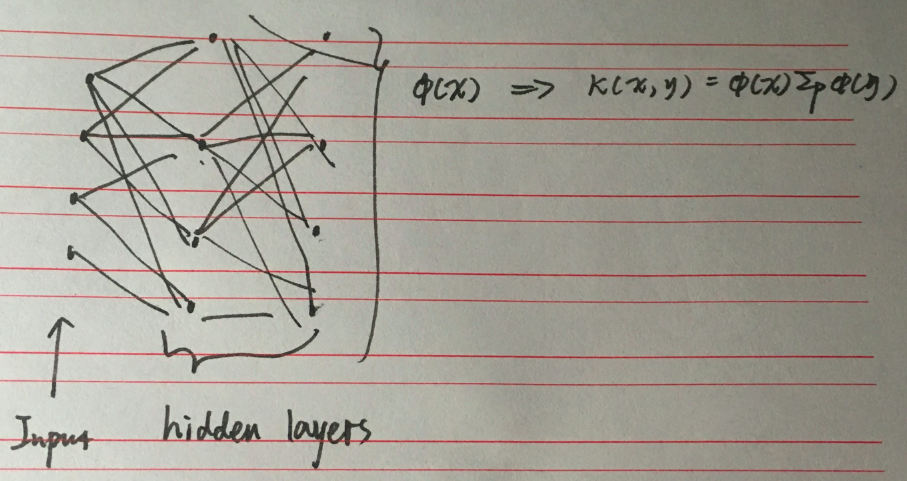 ϕ(x) => K(x,y) = ϕ(x) Σp ϕ(y)
Input
hidden layers